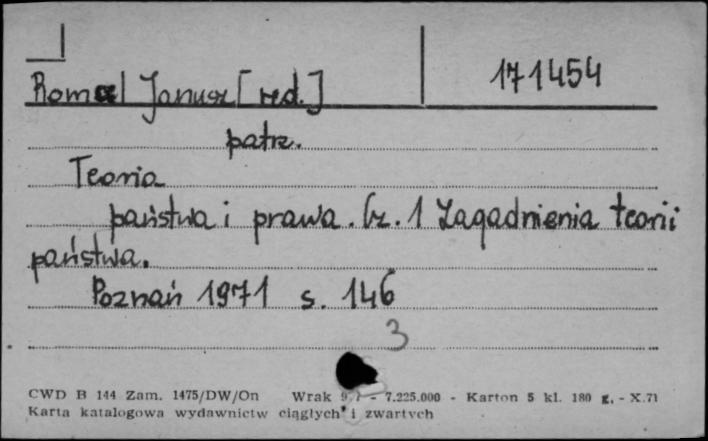 Romal Janusz [red.] 171454
patrz.
Teoria
państwa i prawa. Cz. 1 Zagadnienia teorii
państwa.
Poznań 1971 s. 146
3
CWD B 144 Zam. 1475/DW/On Wrak - 7.225.000 - Karton 5 kl. 180 g. - X.71
Karta katalogowa wydawnictw ciągłych i zwartych